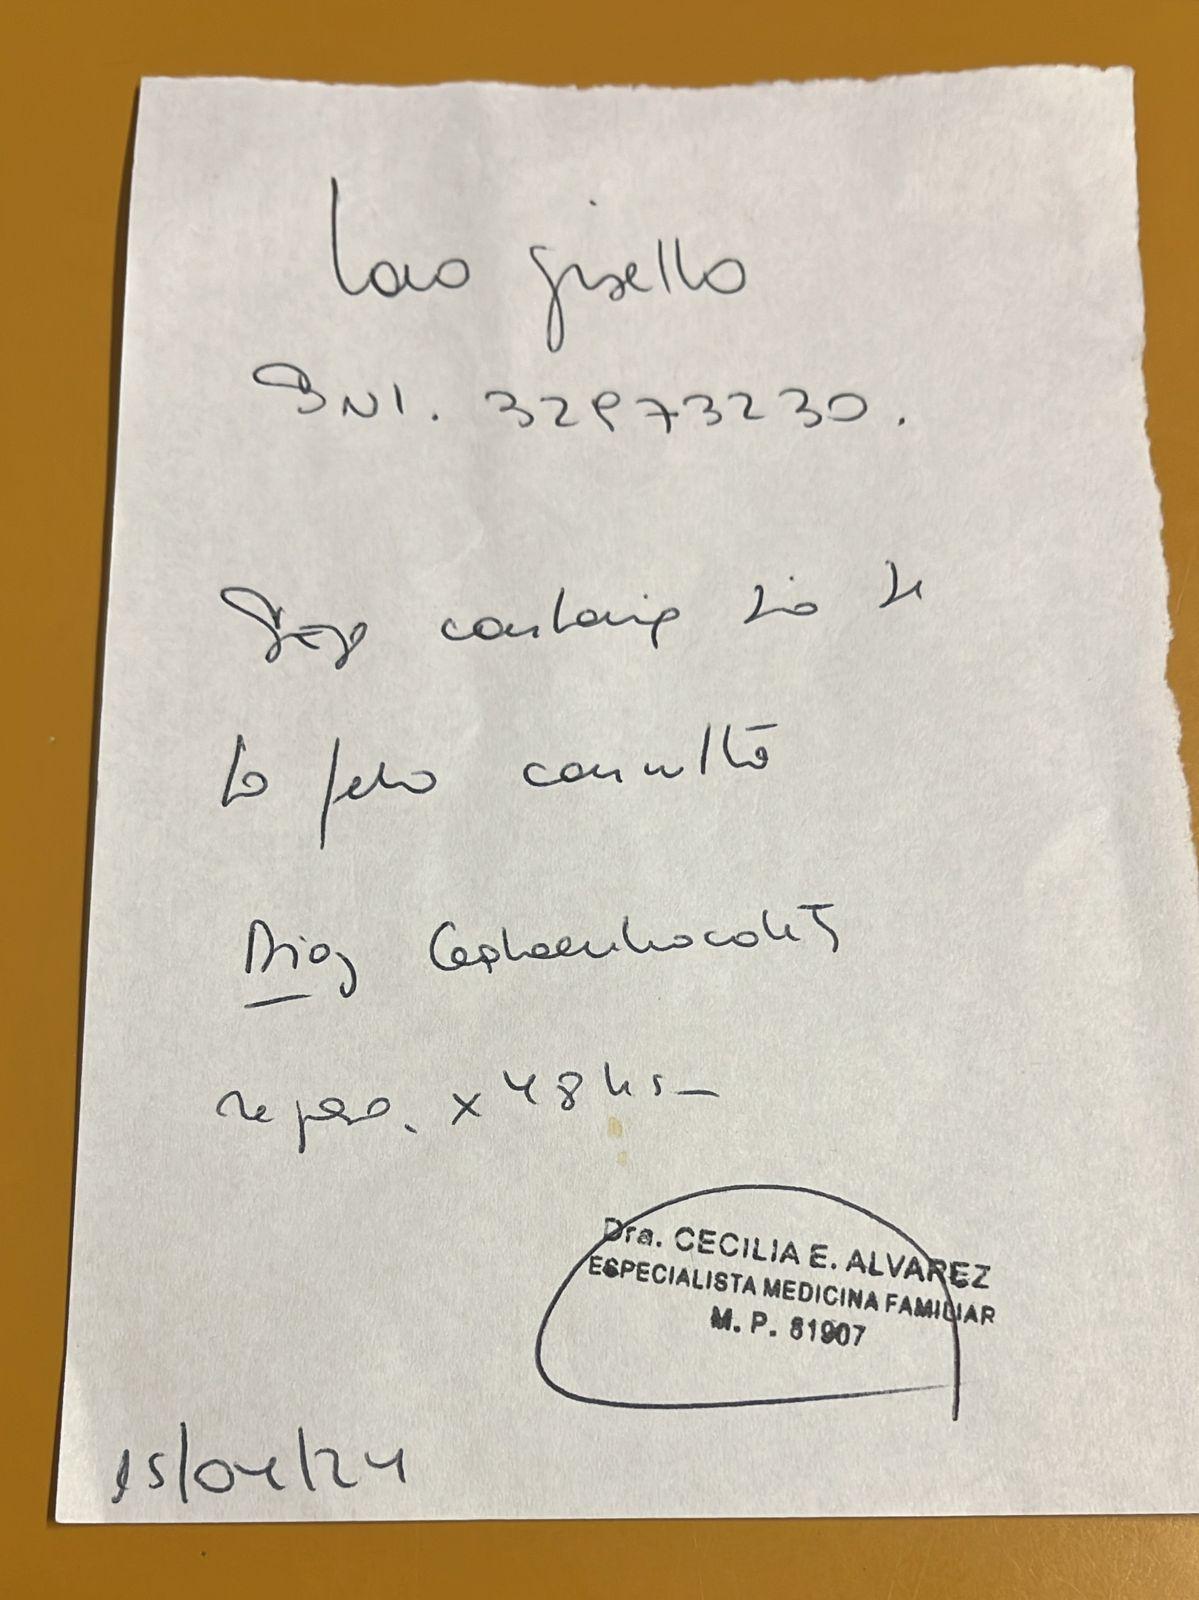 Loio Gisella
DNI. 32973230.
Dejo constancia dia de
la fecha consultó
Diag Gastroenterocolitis
reposo. x 48 hs -
Dra. CECILIA E. ALVAREZ
ESPECIALISTA MEDICINA FAMILIAR
M. P. 61907
15/04/24